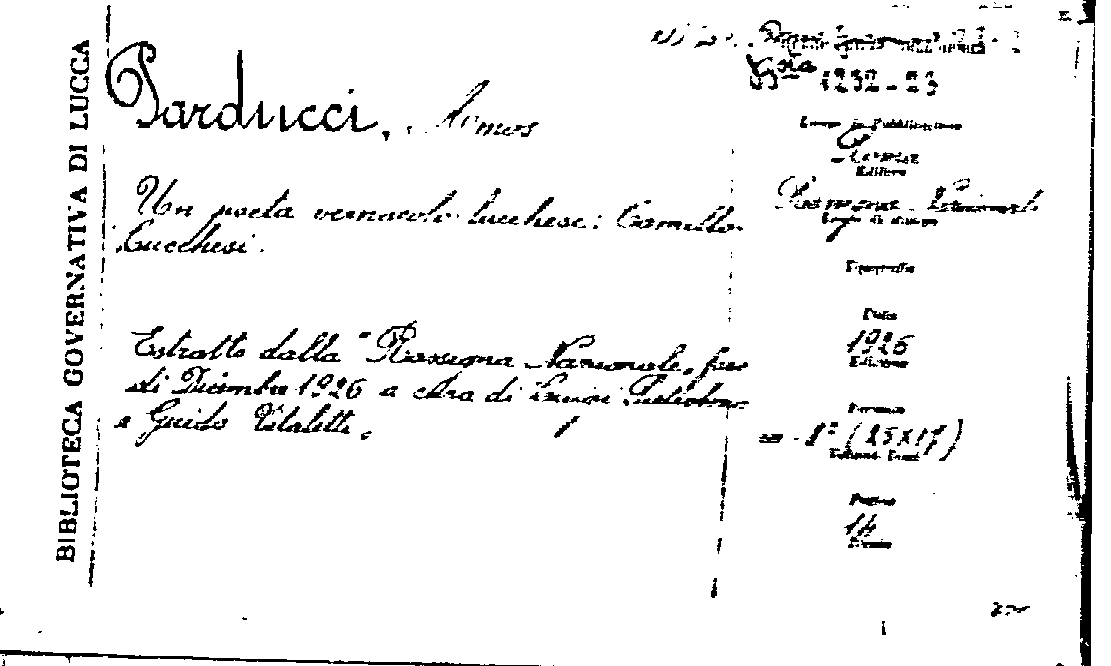 BIBLIOTECA GOVERNATIVA DI LUCCA
Parducci, Amos
Un poeta vernacolo lucchese: Camillo
Lucchesi.
Estratto dalla "Rassegna Nazionale, fas
di Dicembre 1926 a cura di Luigi
e Guido Vitaletti.
Bta 1232-23
Luogo di Pubblicazione
Roma
Editore
Rassegna Nazionale
Luogo di stampa
Tipografia
Data
1926
Edizione
Formato
8° (25x17)
Volume Tomi
Pagine
14